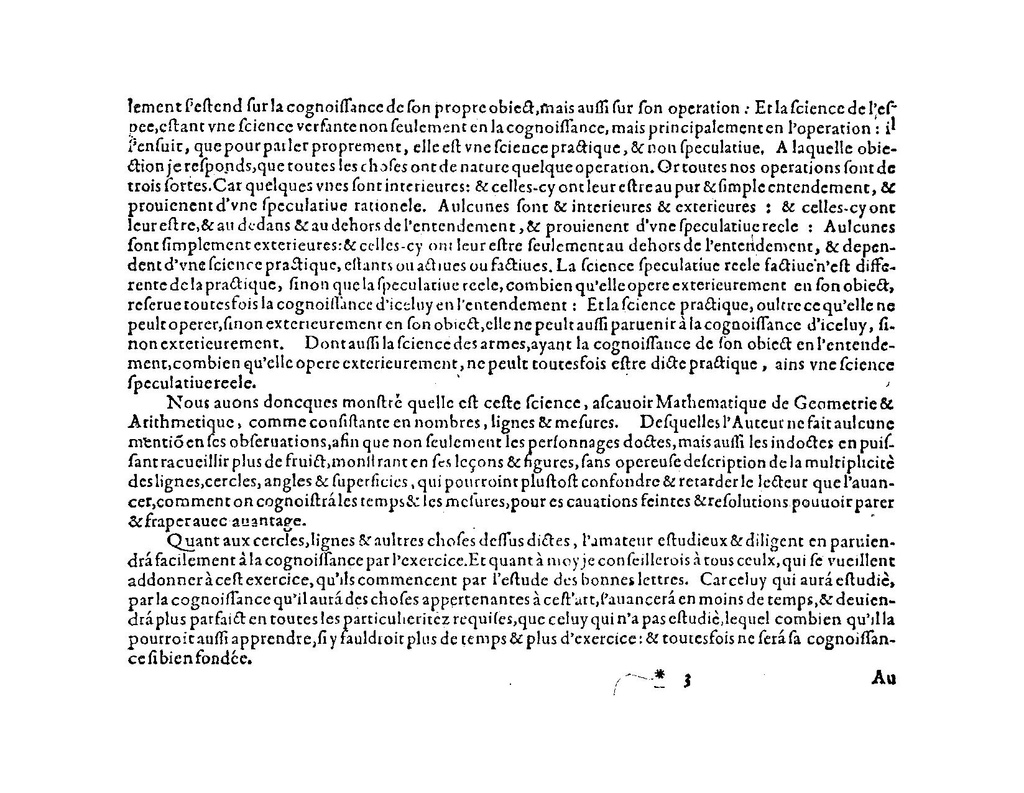 lement ſ'eſtend ſur la cognoiſſance de ſon propre obiect, mais auſſi ſur ſon operation : Et la ſcience de l'eſ-
pee, eſtant vne ſcience verſante non ſeulement en la cognoiſſance, mais principalement en l'operation : il
ſ'enſuit, que pour parler proprement, elle eſt vne ſcience practique, & non ſpeculatiue. A laquelle obie-
ction je reſponds, que toutes les choſes ont de nature quelque operation. Or toutes nos operations ſont de
trois ſortes. Car quelques vnes ſont interieures: & celles-cy ont leur eſtre au pur & ſimple entendement, &
prouienent d'vne ſpeculatiue rationele. Aulcunes ſont & interieures & exterieures : & celles-cy ont
leur eſtre, & au dedans & au dehors de l'entendement, & prouienent d'vne ſpeculatiue reele : Aulcunes
ſont ſimplement exterieures: & celles-cy ont leur eſtre ſeulement au dehors de l'entendement, & depen-
dent d'vne ſcience practique, eſtants ou actiues ou factiues. La ſcience ſpeculatiue reele factiue n'eſt diffe-
rente de la practique, ſinon que la ſpeculatiue reele, combien qu'elle opere exterieurement en ſon obiect,
reſerue toutesfois la cognoiſſance d'iceluy en l'entendement : Et la ſcience practique, oultre ce qu'elle ne
peult operer, ſinon exterieurement en ſon obiect, elle ne peult auſſi paruenir à la cognoiſſance d'iceluy, ſi-
non exterieurement. Dont auſſi la ſcience des armes, ayant la cognoiſſance de ſon obiect en l'entende-
ment, combien qu'elle opere exterieurement, ne peult toutesfois eſtre dicte practique, ains vne ſcience
ſpeculatiue reele.
Nous auons doncques monſtrè quelle eſt ceſte ſcience, aſcauoir Mathematique de Geometrie &
Arithmetique, comme conſiſtante en nombres, lignes & meſures. Deſquelles l'Auteur ne fait aulcune
mentiõ en ſes obſeruations, afin que non ſeulement les perſonnages doctes, mais auſſi les indoctes en puiſ-
ſant racueillir plus de fruict, monſtrant en ſes leçons & figures, ſans opereuſe deſcription de la multiplicitè
des lignes, cercles, angles & ſuperficies, qui pourroint pluſtoſt confondre & retarder le lecteur que l'auan-
cer, comment on cognoiſtrá les temps & les meſures, pour es cauations feintes & reſolutions pouuoir parer
& fraper auec auantage.
Quant aux cercles, lignes & aultres choſes deſſus dictes, l'amateur eſtudieux & diligent en paruien-
drá facilement à la cognoiſſance par l'exercice. Et quant à moy je conſeillerois à tous ceulx, qui ſe vueillent
addonner à ceſt exercice, qu'ils commencent par l'eſtude des bonnes lettres. Car celuy qui aurá eſtudiè,
par la cognoiſſance qu'il aurá des choſes appertenantes à ceſt'art, ſ'auancerá en moins de temps, & deuien-
drá plus parfaict en toutes les particulieritez requiſes, que celuy qui n'a pas eſtudiè, lequel combien qu'illa
pourroit auſſi apprendre, ſi y fauldroit plus de temps & plus d'exercice: & toutesfois ne ſerá ſa cognoiſſan-
ce ſi bien fondée.
* 3 Au